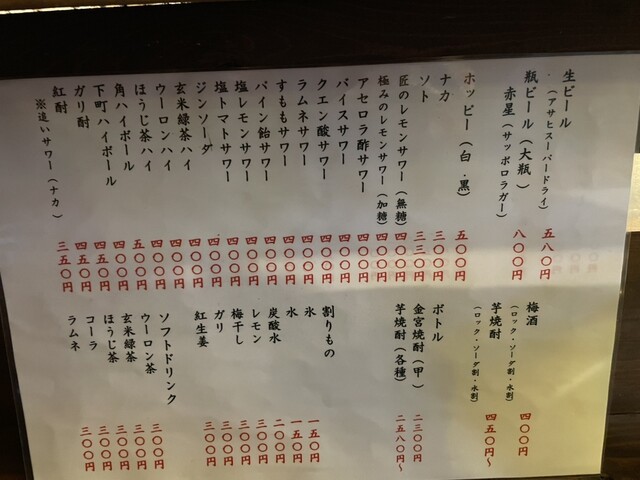 生ビール
(アサヒスーパードライ) 五八〇円
瓶ビール(大瓶)
赤星(サッポロラガー) 八〇〇円
ホッピー(白・黒) 五〇〇円
ナカ 三〇〇円
ソト 三三〇円
匠のレモンサワー(無糖) 四〇〇円
極みのレモンサワー(加糖) 四〇〇円
アセロラ酢サワー 四〇〇円
バイスサワー 四〇〇円
クエン酸サワー 四〇〇円
ラムネサワー 四〇〇円
すももサワー 四〇〇円
パイン飴サワー 四〇〇円
塩レモンサワー 四〇〇円
塩トマトサワー 四〇〇円
ジンソーダ 四〇〇円
玄米緑茶ハイ 四〇〇円
ウーロンハイ 四〇〇円
ほうじ茶ハイ 五〇〇円
角ハイボール 四〇〇円
下町ハイボール 四五〇円
ガリ酎 四五〇円
紅酎 三五〇円
※追いサワー(ナカ)
梅酒
(ロック・ソーダ割・水割) 四〇〇円
芋焼酎
(ロック・ソーダ割・水割) 四五〇円~
ボトル
金宮焼酎(甲) 二三〇〇円
芋焼酎(各種) 二五八〇円~
割りもの
氷 一五〇円
水 一五〇円
炭酸水 二〇〇円
レモン 三〇〇円
梅干し 三〇〇円
ガリ 三〇〇円
紅生姜 三〇〇円
ソフトドリンク
ウーロン茶 三〇〇円
玄米緑茶 三〇〇円
ほうじ茶 三〇〇円
コーラ 三〇〇円
ラムネ 三〇〇円